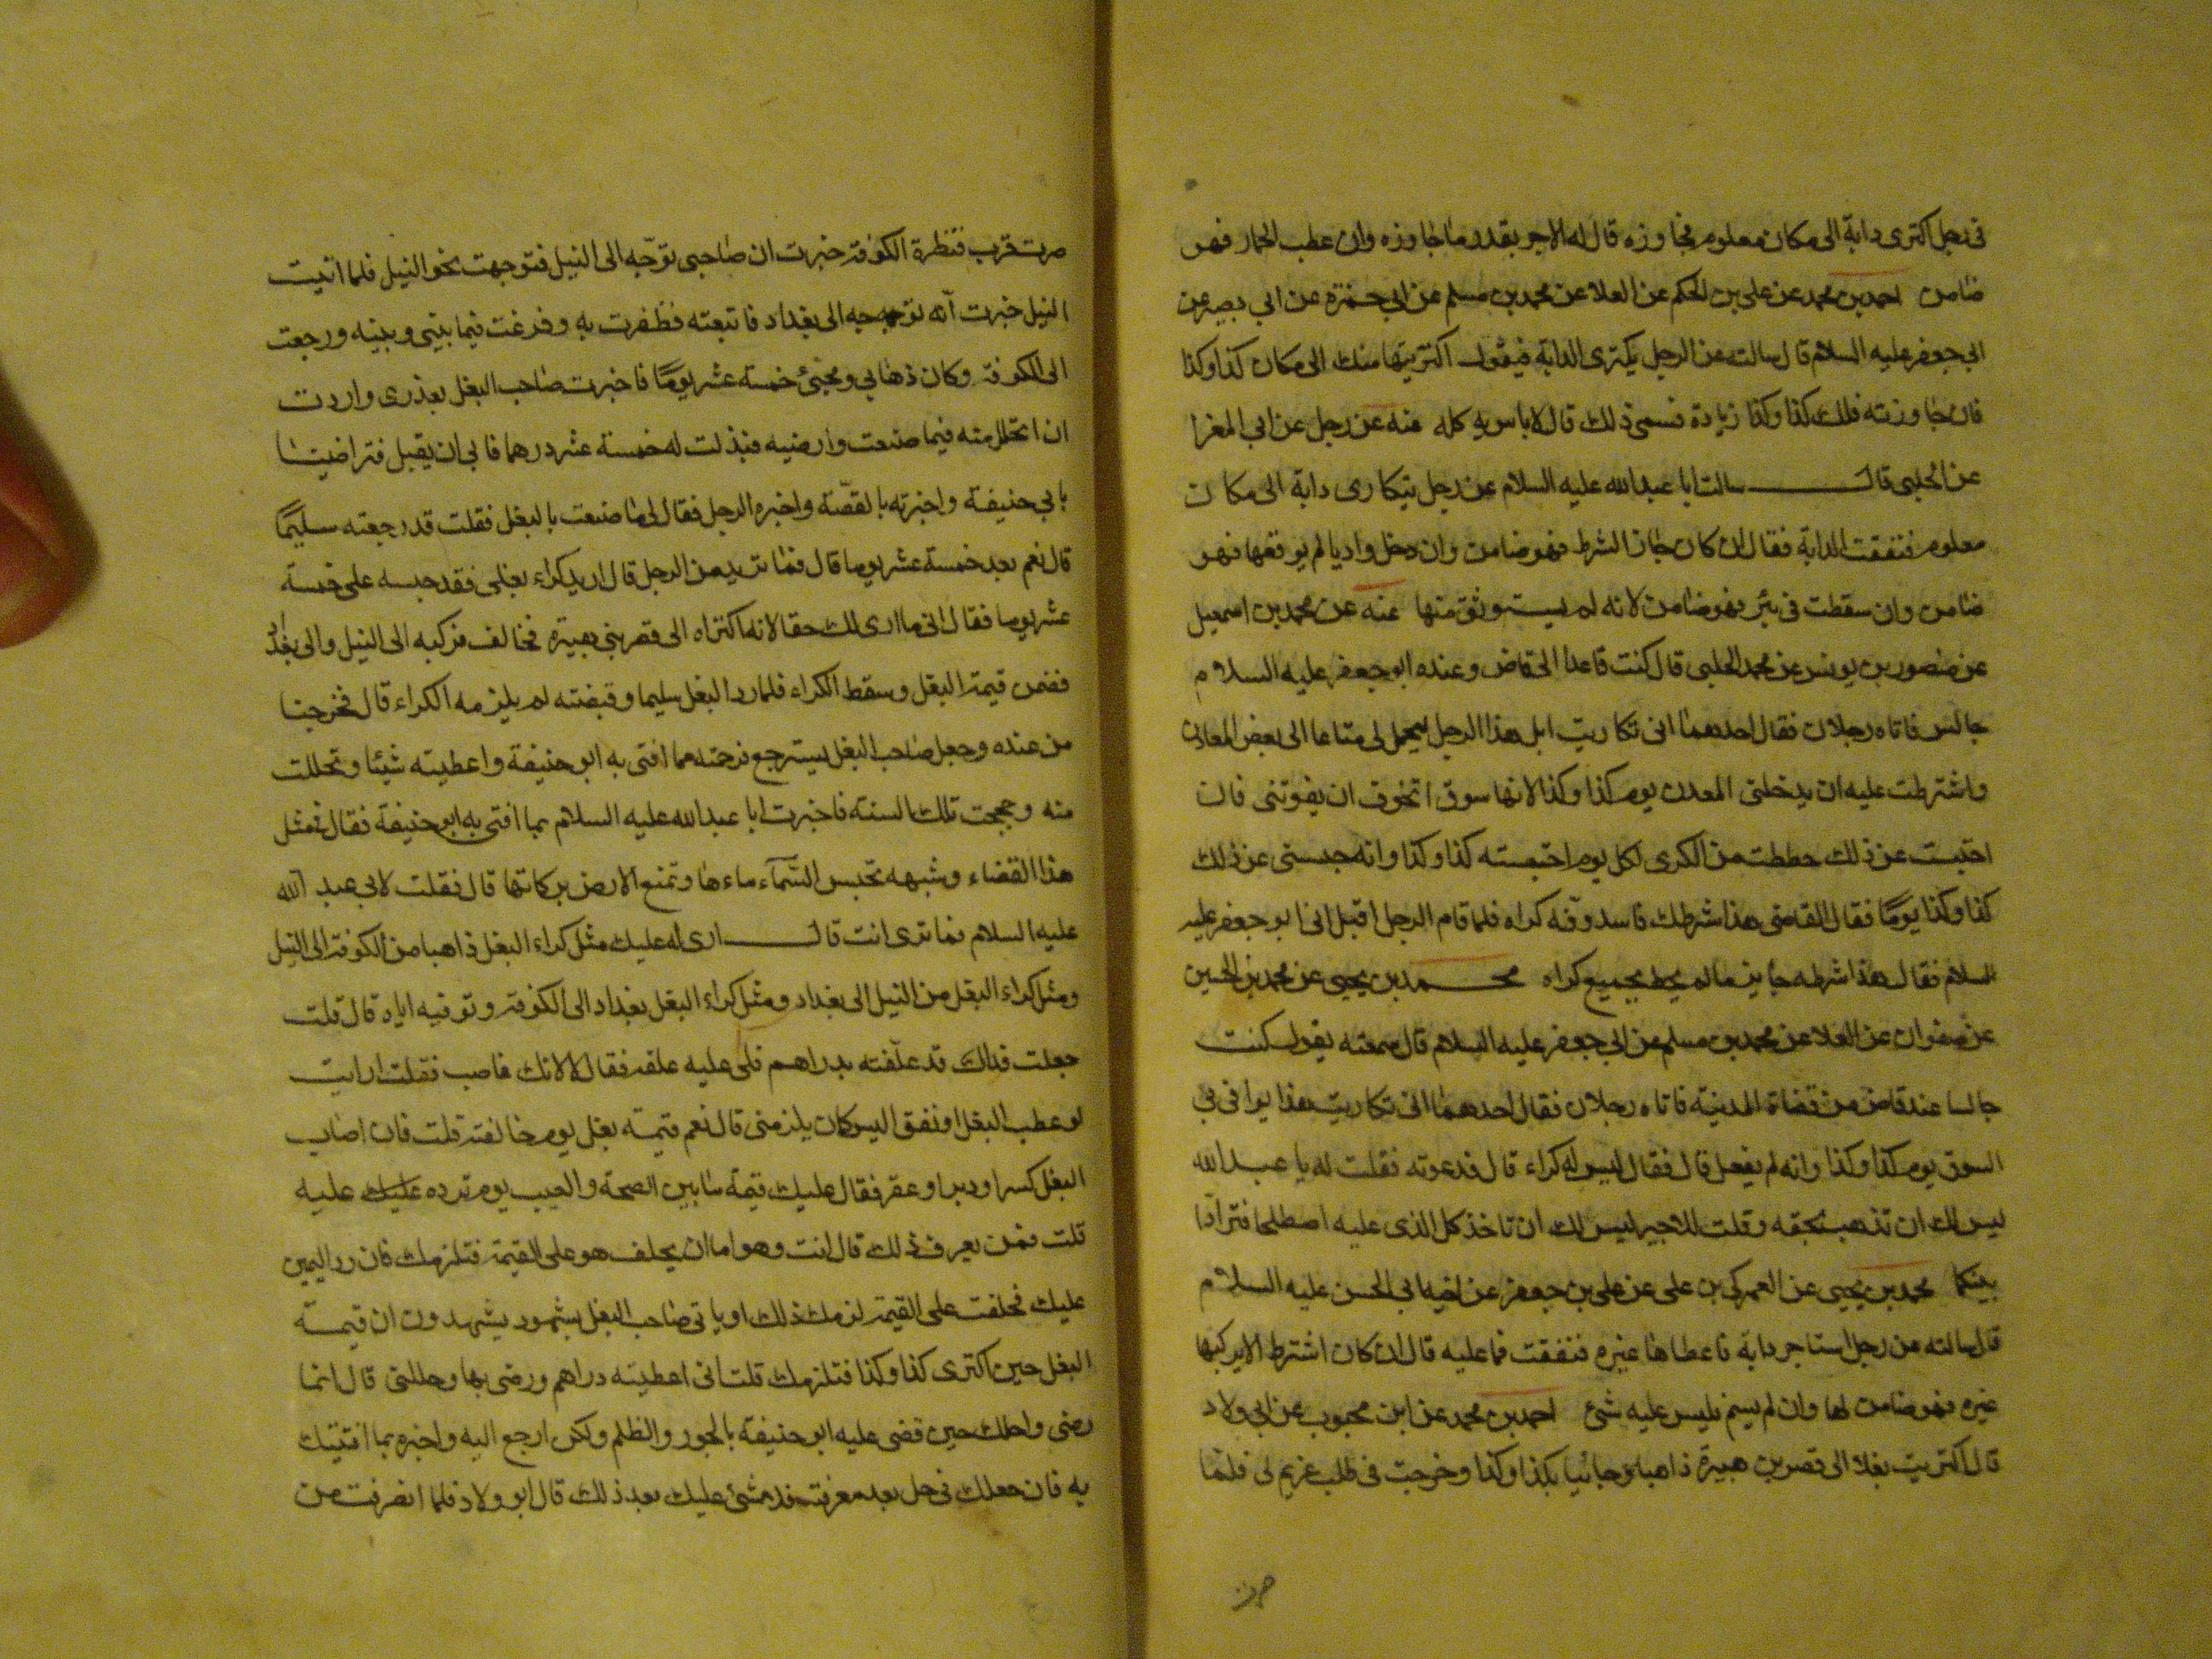 فى رجل اكترى دابة الى مكان معلوم فجاوزه قال له الاجر بقدر ما جاوزه وان عطب الحمار فهو
ضامن احمد بن محمد عن على بن الحكم عن العلا عن محمد بن مسلم عن ابى حمزه عن ابى بصير عن
ابى جعفر عليه السلام قال سالته عن الرجل يكترى الدابة فيقول اكتريتها منك الى مكان كذا وكذا
فان جاوزته فلك كذا وكذا زيادة فسمى ذلك قال لا باس به كله عنه عن رجل عن ابى المغرا
عن الحلبى قال سالت ابا عبدالله عليه السلام عن رجل يتكارى دابة الى مكان
معلوم فنفقت الدابة فقال ان كان جاز الشرط فهو ضامن وان دخل واديا لم يوثقها فهو
ضامن وان سقطت فى بئر فهو ضامن لانه لم يستوثق منها عنه عن محمد بن اسمعيل
عن منصور بن يونس عن محمد الحلبى قال كنت قاعدا الى قاض وعنده ابو جعفر عليه السلام
جالس فاتاه رجلان فقال احدهما انى تكاريت ابل هذا الرجل ليحمل لى متاعا الى بعض المعادن
واشترطت عليه ان يدخلنى المعدن يوم كذا وكذا لانها سوق اتخوف ان يفوتنى فان
احتبست عن ذلك حططت من الكرى لكل يوم احتبسته كذا وكذا وانه حبسنى عن ذلك
كذا وكذا يومًا فقال القاضى هذا شرطك فاسد وفّه كراه فلما قام الرجل اقبل الى ابو جعفر عليه
السلام فقال هذا شرطه جايز ما لم يحط بجميع كراه محمد بن يحيى عن محمد بن الحسين
عن صفوان عن العلا عن محمد بن مسلم عن ابى جعفر عليه السلام قال سمعته يقول كنت
جالسا عند قاض من قضاة المدينة فاتاه رجلان فقال احدهما انى تكاريت هذا يوافى بى
السوق يوم كذا وكذا وانه لم يفعل قال فقال ليس له كراء قال فدعوته فقلت له يا عبدالله
ليس لك ان تذهب بحقه وقلت للاجير ليس لك ان تاخذ كل الذى عليه اصطلحا فترادّا
بينكما محمد بن يحيى عن العمركى بن على عن على بن جعفر عن اخيه ابى الحسن عليه السلام
قال سالته عن رجل استاجر دابة فاعطاها غيره فنفقت فما عليه قال ان كان اشترط الا يركبها
غيره فهو ضامن لها وان لم يسم فليس عليه شئ احمد بن محمد عن ابن محبوب عن ابى ولاد
قال اكتريت بغلا الى قصر بن هبيرة ذاهبا وجائيا بكذا وكذا وخرجت فى طلب غريم لى فلما
صرت قرب قنطرة الكوفة خبرت ان صاحبى توجّه الى النيل فتوجهت نحو النيل فلما اتيت
النيل خبرت انّه توجه الى بغداد فاتبعته فظفرت به وفرغت فيما بينى وبينه ورجعت
الى الكوفة وكان ذهابى ومجيئ خمسة عشر يومًا فاخبرت صاحب البغل بعذرى واردت
ان اتحلل منه فيما صنعت وارضيه فبذلت له خمسة عشر درهما فابى ان يقبل فتراضينا
بابى حنيفة واخبرته بالقصّة واخبره الرجل فقال لى ما صنعت بالبغل فقلت قد رجعته سليمًا
قال نعم بعد خمسة عشر يوما قال فما تريد من الرجل قال اريد كراء بغلى فقد حبسه على خمسة
عشر يوما فقال انى ما ارى لك حقا لانه اكتراه الى قصر بنى هبيرة فخالف فركبه الى النيل والى بغداد
فضمن قيمة البغل وسقط الكراء فلما رد البغل سليما وقبضته لم يلزمه الكراء قال فخرجنا
من عنده وجعل صاحب البغل يسترجع فرحمته مما افتى به ابو حنيفة واعطيته شيئا وتحللت
منه وحججت تلك السنة فاخبرت ابا عبدالله عليه السلام بما افتى به ابو حنيفة فقال فى مثل
هذا القضاء وشبهه تحبس السّمآء ماءها وتمنع الارض بركاتها قال فقلت لابى عبد الله
عليه السلام فما ترى انت قال ارى له عليك مثل كراء البغل ذاهبا من الكوفة الى النيل
ومثل كراء البغل من النيل الى بغداد ومثل كراء البغل بغداد الى الكوفة وتوفيه اياه قال قلت
جعلت فداك قد علّفته بدراهم فلى عليه علفه فقال لا لانك غاصب فقلت ارايت
لو عطب البغل او نفق اليس كان يلزمنى قال نعم قيمة بغل يوم خالفته قلت فان اصاب
البغل كسر او دبر او عقر فقال عليك قيمة ما بين الصحة والعيب يوم ترده عليك عليه
قلت فمن يعرف ذلك قال انت وهو اما ان يحلف هو على القيمة فتلزمك فان رد اليمين
عليك فحلفت على القيمة لزمك ذلك او ياتى صاحب البغل بشهود يشهدون ان قيمة
البغل حين اكترى كذا وكذا فتلزمك قلت انى اعطيته دراهم ورضى بها وحللنى قال انما
رضى واحلك حين قضى عليه ابو حنيفة بالجور والظلم ولكن ارجع اليه واخبره بما افتيتك
به فان جعلك فى حل بعد معرفته فلا شئ عليك بعد ذلك قال ابو ولاد فلما انصرفت من